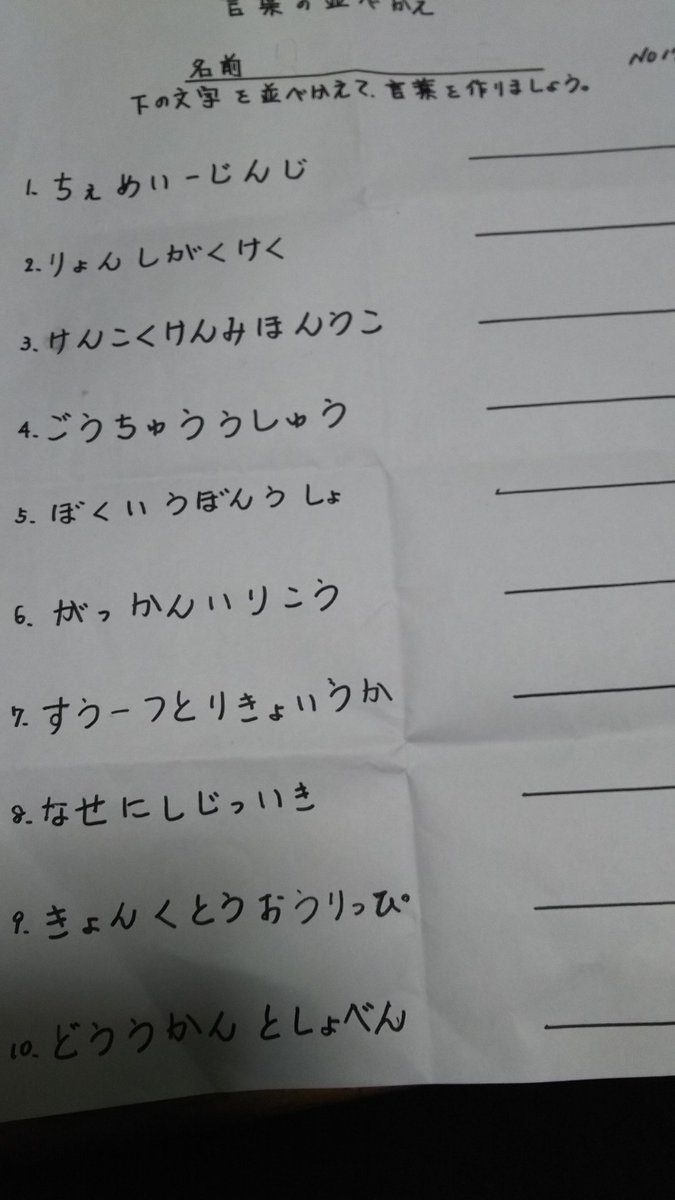 言葉の並べかえ
名前
下の文字を並べかえて、言葉を作りましょう。
1. ちぇめいーじんじ
2. りょんしがくけく
3. けんこくけんみほんうこ
4. ごうちゅううしゅう
5. ぼくいうぼんうしょ
6. がっかんいりこう
7. すうーつとりきょいうか
8. なせにしじっいき
9. きょんくとうおうりっぴ
10. どううかんとしょべん